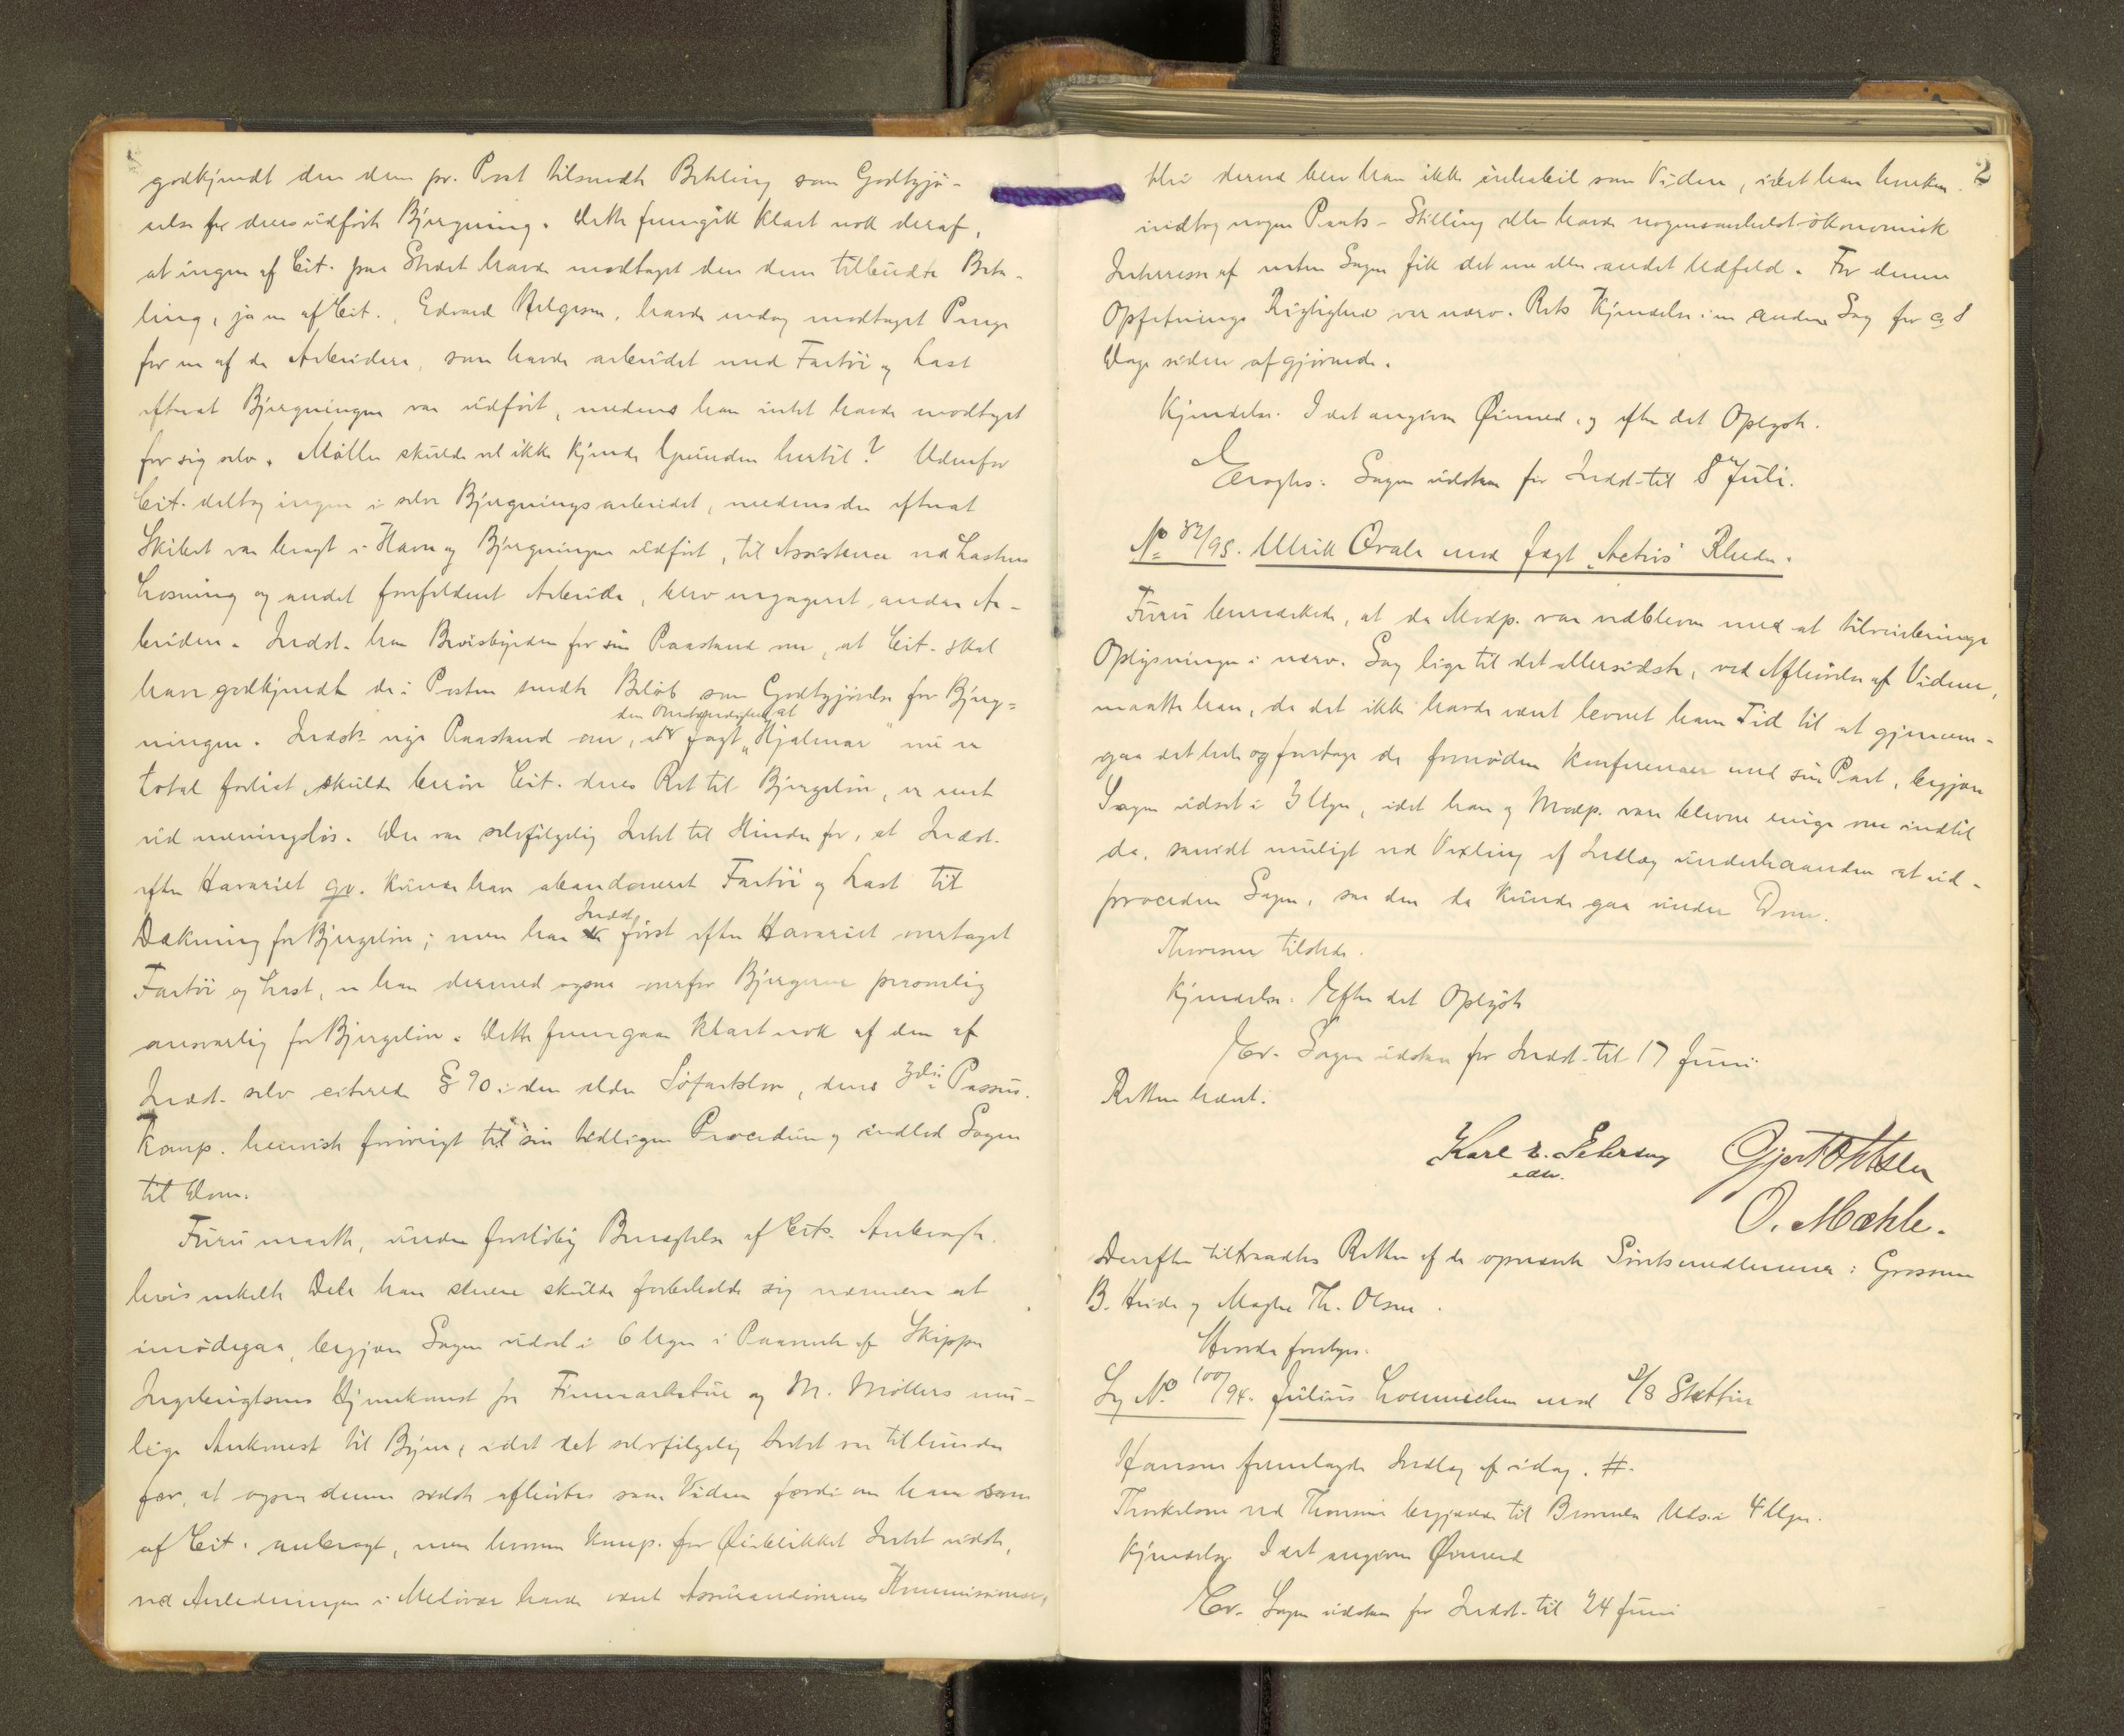 godkjendt den dem pr. Post tilsendte Betaling som Godtgjø-
relse for deres udførte Bjergning. Dette fremgik klart nok deraf,
at ingen af Cit. paa Stedet havde modtaget den dem tilbudte Beta-
ling, ja en af Cit., Edvard Helgesen, havde endog modtaget Penge
for en af de Arbeidere, som havde arbeidet med Fartøi og Last
efterat Bjergningen var udført, medens han intet havde modtaget
for sig selv. Møller skulde vel ikke kjende Grunden hertil? Udenfor
Cit. deltog ingen i selve Bjergningsarbeidet, medens der efterat
Skibet var bragt i Havn og Bjergningen udført, til Assistance ved Lastens
Losning og andet forefaldent Arbeide, blev engageret andre Ar-
beidere. Indst. har Bevisbyrden for sin Paastand om, at Cit. skal
have godkjendt de i Posten sendte Beløb som Godtgjørelse for Bjerg-
ningen. Indst. nye Paastand om, at den Omstændighed at Jagt „Hjalmar" nu er
total forlist, skulde berøve Cit. deres Ret til Bjergeløn, er rent
ud meningsløs. Der var selvfølgelig Intet til Hinder for, at Indst.
efter Havariet gr. kunde have abandoneret Fartøi og Last til
Dækning for Bjergeløn; men har Indst. først efter Havariet overtaget
Fartøi og Last, er han dermed ogsaa overfor Bjergerne personlig
ansvarlig for Bjergeløn. Dette fremgaar klart nok af den af
Indst. selv citerede § 90 i den ældre Søfartslov, dens 3die Passus.
Komp. henviste forøvrigt til sin tidligere Procedure og indlod Sagen
til Dom.
Furu maatte, under foreløbig Benægtelse af Cits. Anbragte,
hvis enkelte Dele han senere skulde forbeholde sig nærmere at
imødegaa, begjære Sagen udsat i 6 Uger i Paavente af Skipper
Ingebrigtsens Hjemkomst fra Finmarkstur og M. Møllers mu-
lige Ankomst til Byen, idet det selvfølgelig Intet var til hinder
for, at ogsaa denne sidste afhørtes som Vidne fordi om han som
af Cit. anbragt, men hvorom Komp. for Øieblikket Intet vidste,
ved Anledningen i Meløvær havde været Assurandørernes Kommissionær,
2
thi derved blev han ikke inhabil som Vidne, idet han hverken
indtog nogen Parts-Stilling eller havde nogensomhelst økonomisk
Interesse af enten Sagen fik det ene eller andet Udfald. For denne
Opfatnings Rigtighed var nærv. Rets Kjendelse i en anden Sag for ca 8
Dage siden afgjørende.
Kjendelse. I det angivne Øiemed, og efter det Oplyste.
Eragtes: Sagen udstaar for Indst. til 8de Juli.
No 32/95. Ulrik Qvale mod Jagt „Activ's" Rheder.
Furu bemærkede, at da Modp. var vedbleven med at tilveiebringe
Oplysninger i nærv. Sag lige til det allersidste, ved Afhørelse af Vidner,
maatte han, da det ikke havde været levnet ham Tid til at gjennem-
gaa det hele og foretage de fornødne Konferencer med sin Part, begjære
Sagen udsat i 3 Uger, idet han og Modp. vare blevne enige om indtil
da, saavidt muligt ved Vexling af Indlæg underhaanden at ud-
procedere Sagen, saa den da kunde gaa under Dom.
Thoresen tilstede.
Kjendelse. Efter det Oplyste
Er. Sagen udstaar for Indst. til 17 Juni.
Retten hævet.
Gjert Ottsen
O. Mæhle.
Derefter tiltraadtes Retten af de opnævnte Søretsmedlemmer: Grosserer
B. Heide og Mægler Th. Olsen.
Herda foretoges.
Sag No 100/94. Julius Loennechen mod D/S Stettin
Hansen fremlagde Indlæg af idag. #.
Thorkelsen ved Thommesen begjærede til Besvarelse Uds. i 4 Uger.
Kjendelse. I det angivne Øiemed
Er. Sagen udstaar for Indst. til 24 Juni